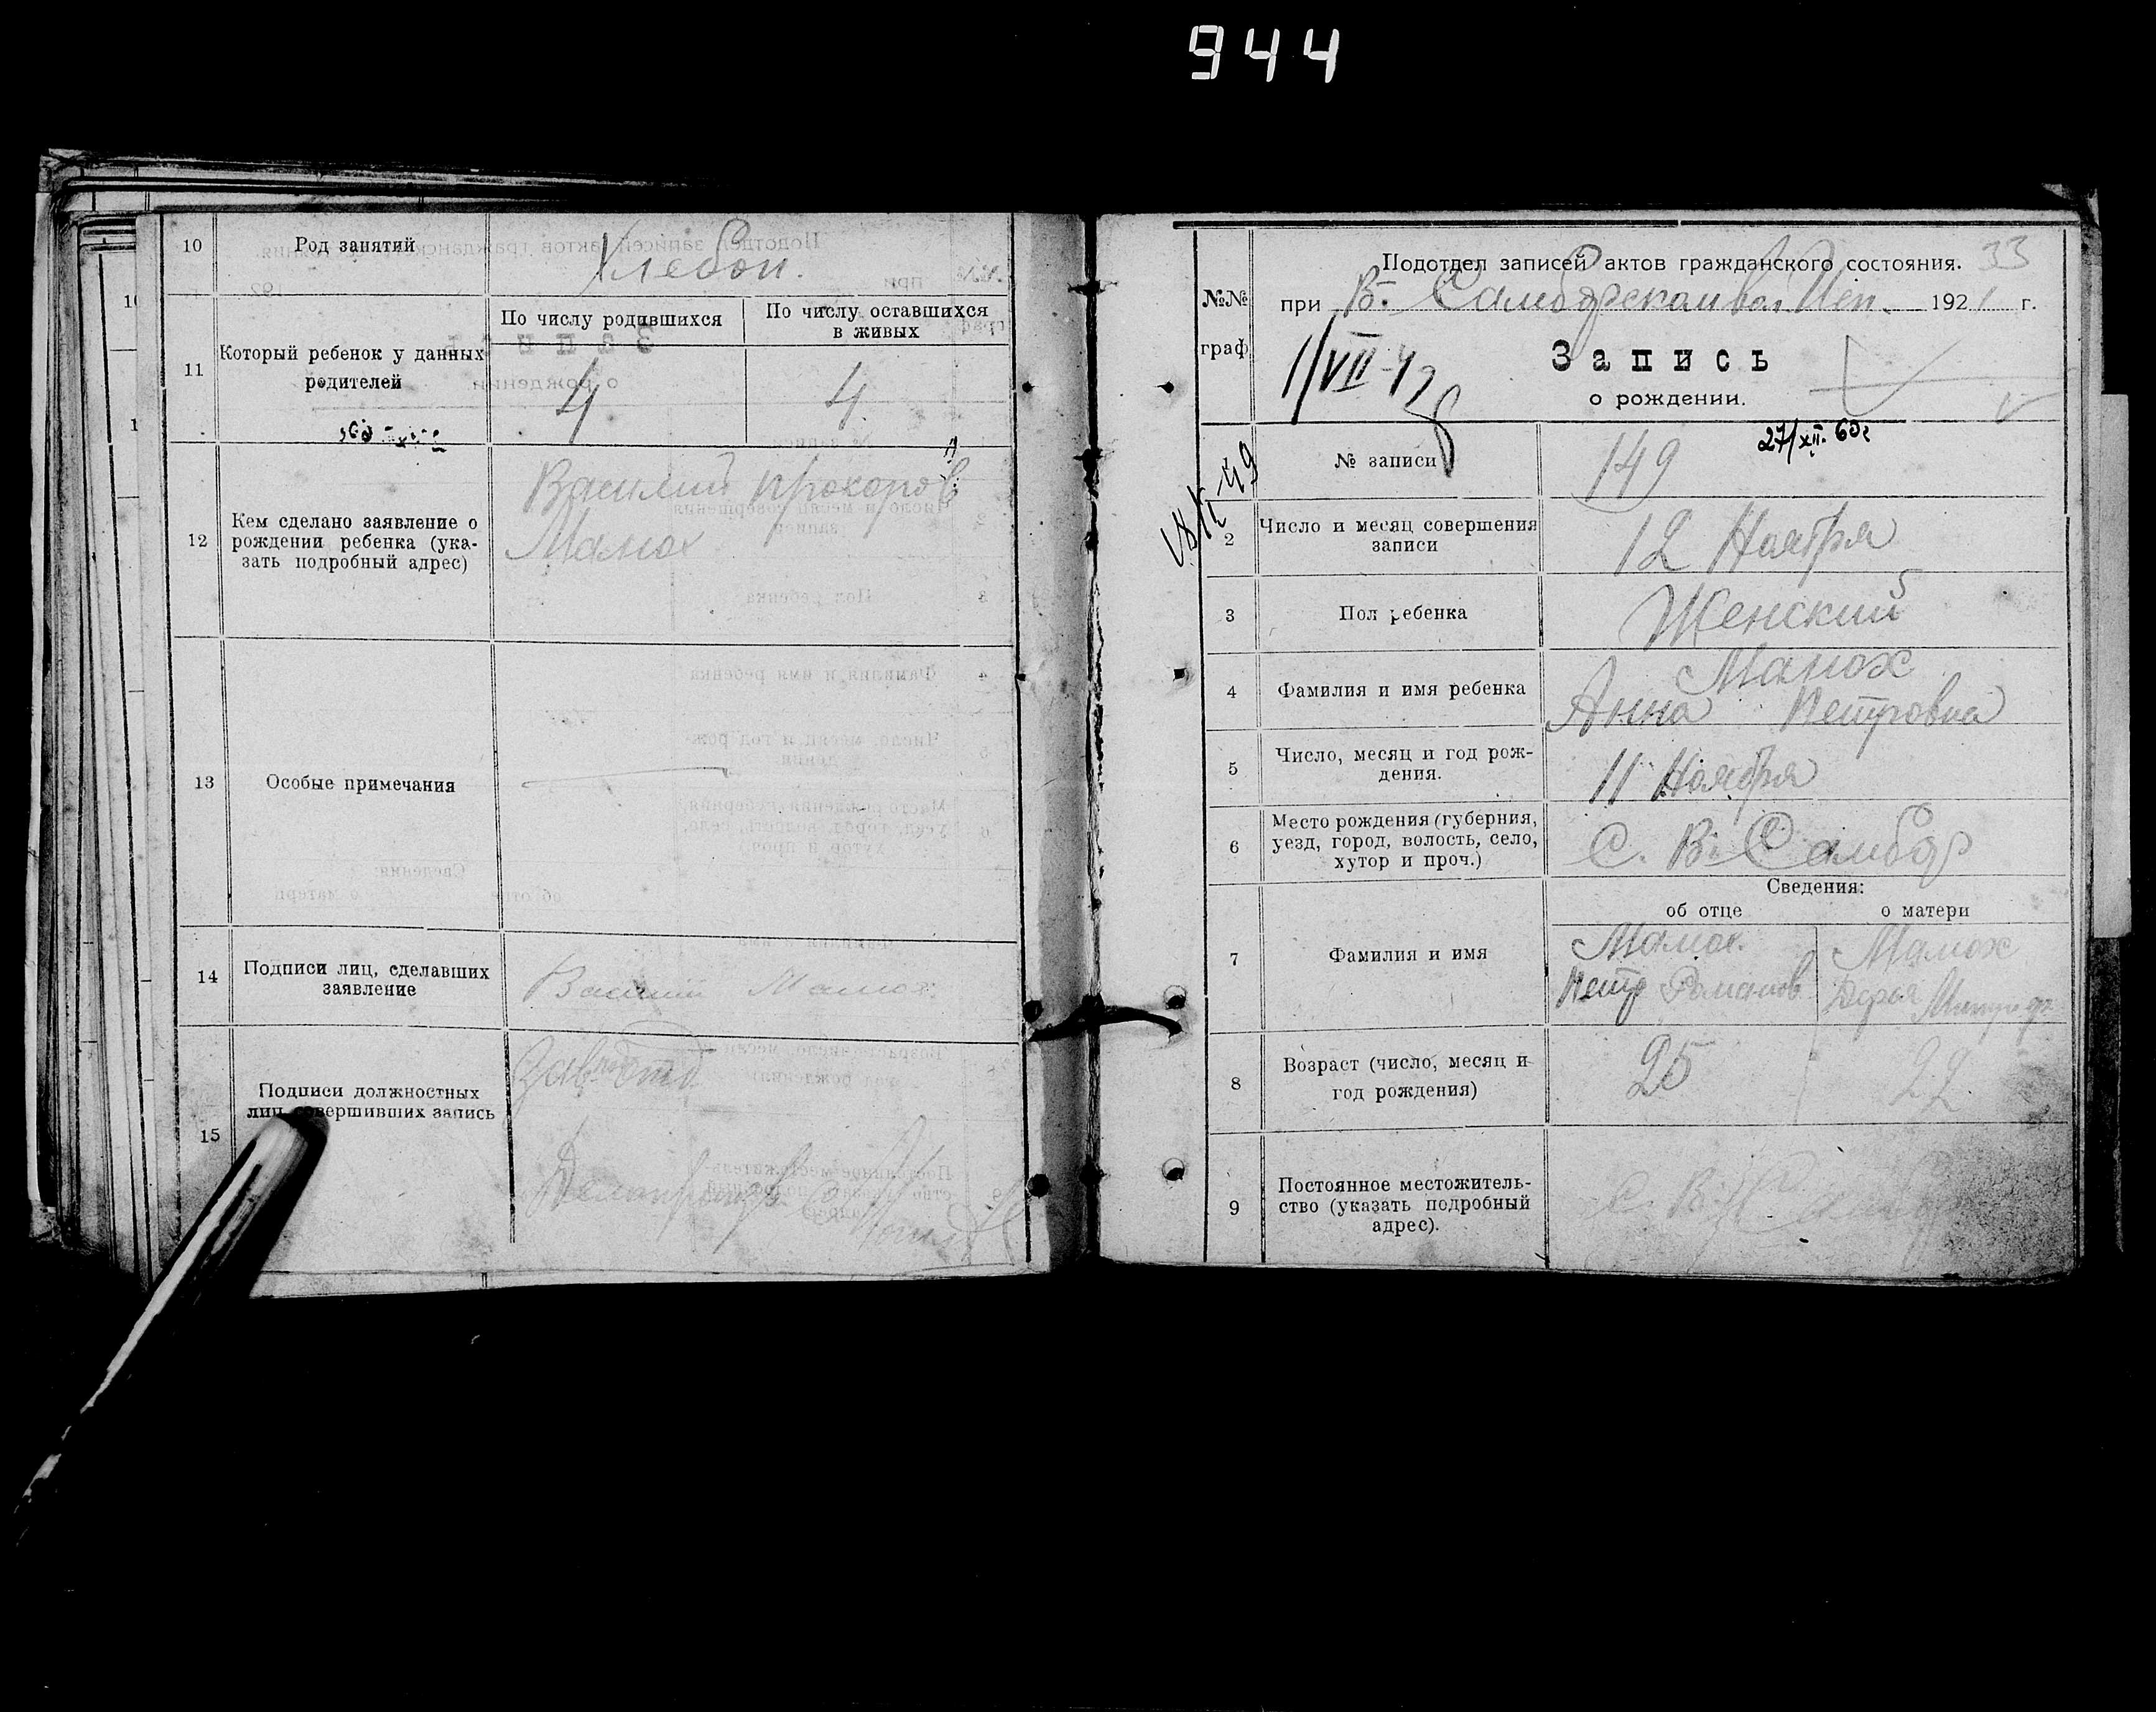 944
10
Род занятий
Хлебоп.
11
Который ребенок у данных
родителей
По числу родившихся
По числу оставшихся
в живых
4
4
12
Кем сделано заявление о
рождении ребенка (ука-
зать подробный адрес)
Василий Прохоров
Манох
13
Особые примечания
14
Подписи лиц, сделавших
заявление
Василий Манох
15
Подписи должностных
лиц совершивших запись
33
№№
граф
Подотдел записей актов гражданского состояния.
при В. Самборском вол. Исп. 1921 г.
Запись
о рождении.
№ записи
149
27/XII. 60г
2
Число и месяц совершения
записи
12 Ноября
3
Пол ребенка
Женский
4
Фамилия и имя ребенка
Манох
Анна Петровна
5
Число, месяц и год рож-
дения.
11 Ноября
6
Место рождения (губерния,
уезд, город, волость, село,
хутор и проч.)
С. В. Самбор
Сведения:
об отце
о матери
7
Фамилия и имя
Манох
Петр Романов
Манох
Дарья
8
Возраст (число, месяц и
год рождения)
25
22
9
Постоянное местожитель-
ство (указать подробный
адрес).
С. В. Самбор